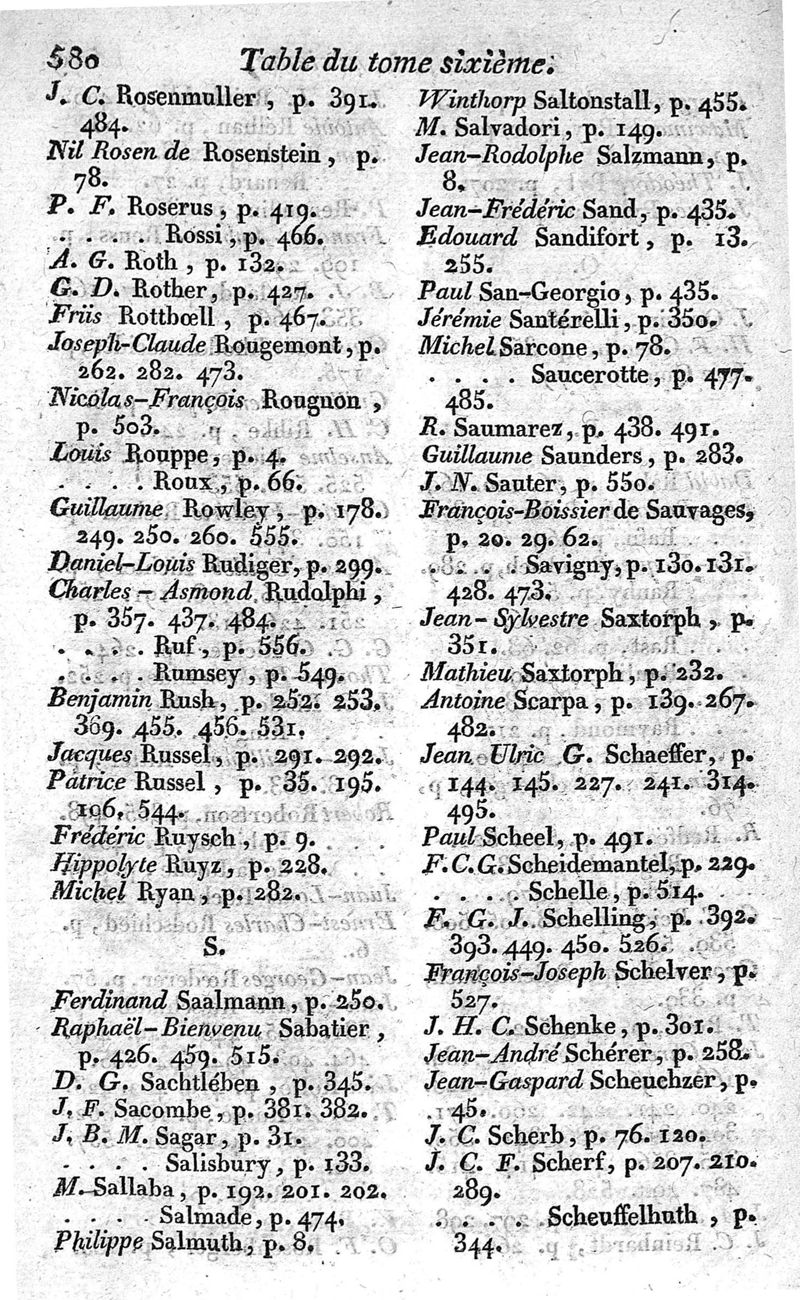 580 Table du tome sixième.
J. C. Rosenmuller, p. 391.
484.
Nil Rosen de Rosenstein, p.
78.
P. F. Roserus, p. 419.
. . . . Rossi, p. 466.
A. G. Roth, p. 132.
G. D. Rother, p. 427.
Friis Rottbœll, p. 467.
Joseph-Claude Rougemont, p.
262. 282. 473.
Nicolas-François Rougnon,
p. 503.
Louis Rouppe, p. 4.
. . . . Roux, p. 66.
Guillaume Rowley, p. 178.
249. 250. 260. 555.
Daniel-Louis Rudiger, p. 299.
Charles-Asmond Rudolphi,
p. 357. 437. 484.
. . . . Ruf, p. 556.
. . . . Rumsey, p. 549.
Benjamin Rush, p. 252. 253.
369. 455. 456. 531.
Jacques Russel, p. 291. 292.
Patrice Russel, p. 35. 195.
196. 544.
Frédéric Ruysch, p. 9.
Hippolyte Ruyz, p. 228.
Michel Ryan, p. 282.
S.
Ferdinand Saalmann, p. 250.
Raphaël-Bienvenu Sabatier,
p. 426. 459. 515.
D. G. Sachtlében, p. 345.
J. F. Sacombe, p. 381. 382.
J. B. M. Sagar, p. 31.
. . . . Salisbury, p. 133.
M. Sallaba, p. 192. 201. 202.
. . . . Salmade, p. 474.
Philippe Salmuth, p. 8.
Winthorp Saltonstall, p. 455.
M. Salvadori, p. 149.
Jean-Rodolphe Salzmann, p.
8.
Jean-Frédéric Sand, p. 435.
Edouard Sandifort, p. 13.
255.
Paul San-Georgio, p. 435.
Jérémie Santérelli, p. 350.
Michel Sarcone, p. 78.
. . . . Saucerotte, p. 477.
485.
R. Saumarez, p. 438. 491.
Guillaume Saunders, p. 283.
J. N. Sauter, p. 550.
François-Boissier de Sauvages,
p. 20. 29. 62.
. . . . Savigny, p. 130. 131.
428. 473.
Jean-Sylvestre Saxtorph, p.
351.
Mathieu Saxtorph, p. 232.
Antoine Scarpa, p. 139. 267.
482.
Jean Ulric G. Schaeffer, p.
144. 145. 227. 241. 314.
495.
Paul Scheel, p. 491.
F. C. G. Scheidemantel, p. 229.
. . . . Schelle, p. 514.
F. G. J. Schelling, p. 392.
393. 449. 450. 526.
François-Joseph Schelver, p.
527.
J. H. C. Schenke, p. 301.
Jean-André Schérer, p. 258.
Jean-Gaspard Scheuchzer, p.
145.
J. C. Scherb, p. 76. 120.
J. C. F. Scherf, p. 207. 210.
289.
. . . . Scheuffelhuth, p.
344.